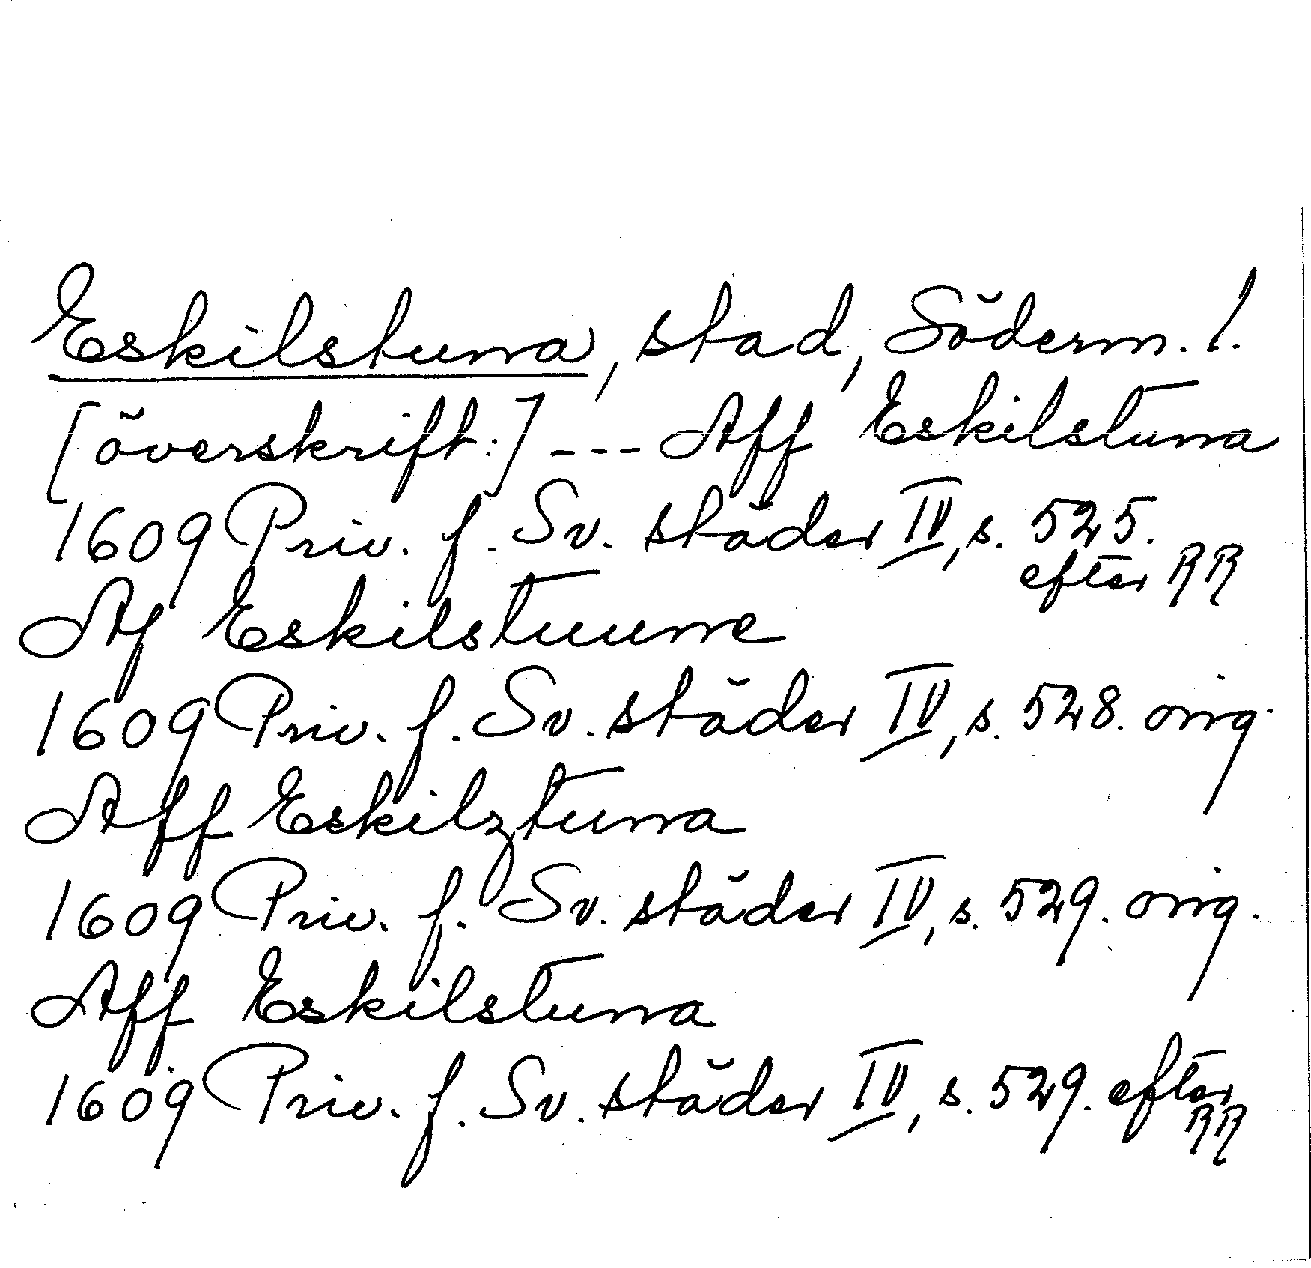 Eskilstuna, stad, Söderm. l.
[överskrift:] --- Aff Eskilstuna
1609 Priv. f. Sv. städer IV, s. 525.
efter RR
Af Eskilstuune
1609 Priv. f. Sv. städer IV, s. 528. orig.
Aff Eskilztuna
1609 Priv. f. Sv. städer IV, s. 529. orig.
Aff Eskilstuna
1609 Priv. f. Sv. städer IV, s. 529. efter
RR